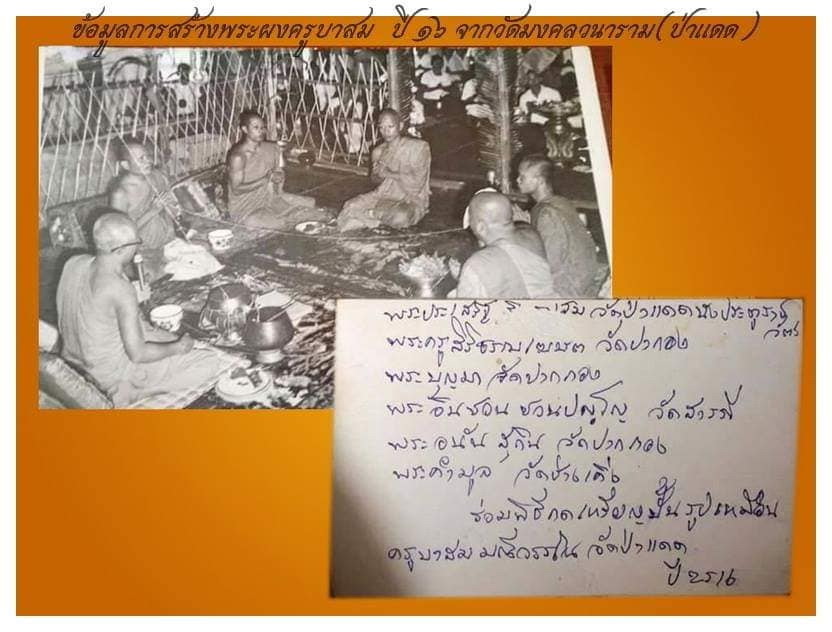 ข้อมูลการสร้างพระผงครูบาสม ปี ๑๖ จากวัดมงคลวนาราม( ป่าแดด )
พระประเสริฐ วัดป่าแดด
พระครูสิริธรรมโฆษิต วัดปากกอง
พระบุญมา วัดปากกอง
พระอินซอน ชวนปญฺโญ วัดสารภี
พระอนันต์ วัดปากกอง
พระคำมูล
ร่วมพิธีกดเหรียญปั้มรูปเหมือน
ครูบาสม วัดป่าแดด
ปี ๒๕๑๖